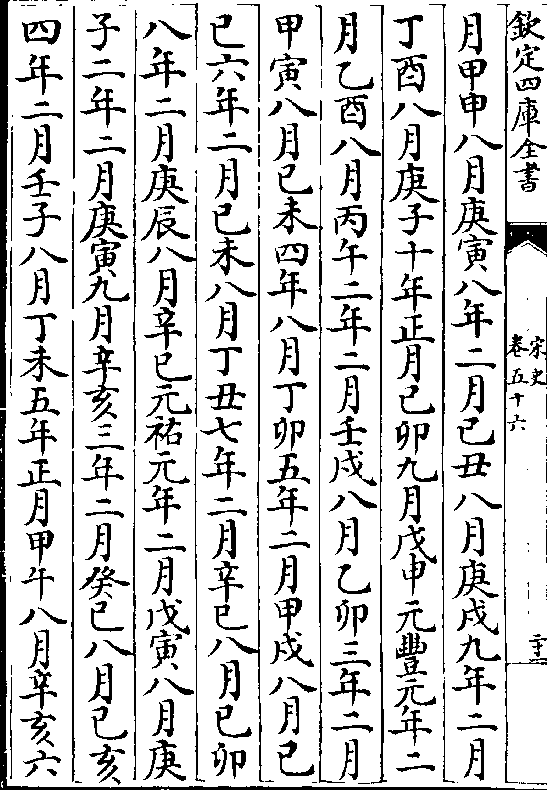 欽定四庫全書
宋史
卷五十六
二十二
月甲申八月庚寅八年二月己丑八月庚戍九年二月
丁酉八月庚子十年正月己卯九月戊申元豐元年二
月乙酉八月丙午二年二月壬戍八月乙卯三年二月
甲寅八月己未四年八月丁卯五年二月甲戍八月已
巳六年二月己未八月丁丑七年二月辛巳八月己卯
八年二月庚辰八月辛巳元祐元年二月戊寅八月庚
子二年二月庚寅九月辛亥三年二月癸巳八月己亥
四年二月壬子八月丁未五年正月甲午八月辛亥六